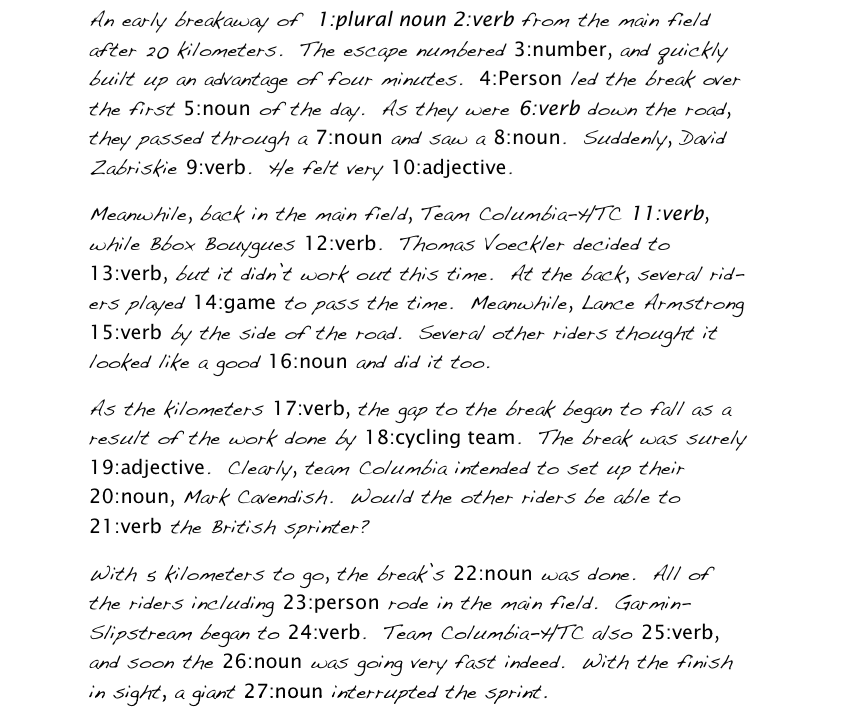 An early breakaway of 1:plural noun 2:verb from the main field
after 20 kilometers. The escape numbered 3:number, and quickly
built up an advantage of four minutes. 4:Person led the break over
the first 5:noun of the day. As they were 6:verb down the road,
they passed through a 7:noun and saw a 8:noun. Suddenly, David
Zabriskie 9:verb. He felt very 10:adjective.
Meanwhile, back in the main field, Team Columbia-HTC 11:verb,
while Bbox Bouygues 12:verb. Thomas Voeckler decided to
13:verb, but it didn't work out this time. At the back, several rid-
ers played 14:game to pass the time. Meanwhile, Lance Armstrong
15:verb by the side of the road. Several other riders thought it
looked like a good 16:noun and did it too.
As the kilometers 17:verb, the gap to the break began to fall as a
result of the work done by 18:cycling team. The break was surely
19:adjective. Clearly, team Columbia intended to set up their
20:noun, Mark Cavendish. Would the other riders be able to
21:verb the British sprinter?
With 5 kilometers to go, the break's 22:noun was done. All of
the riders including 23:person rode in the main field. Garmin-
Slipstream began to 24:verb. Team Columbia-HTC also 25:verb,
and soon the 26:noun was going very fast indeed. With the finish
in sight, a giant 27:noun interrupted the sprint.